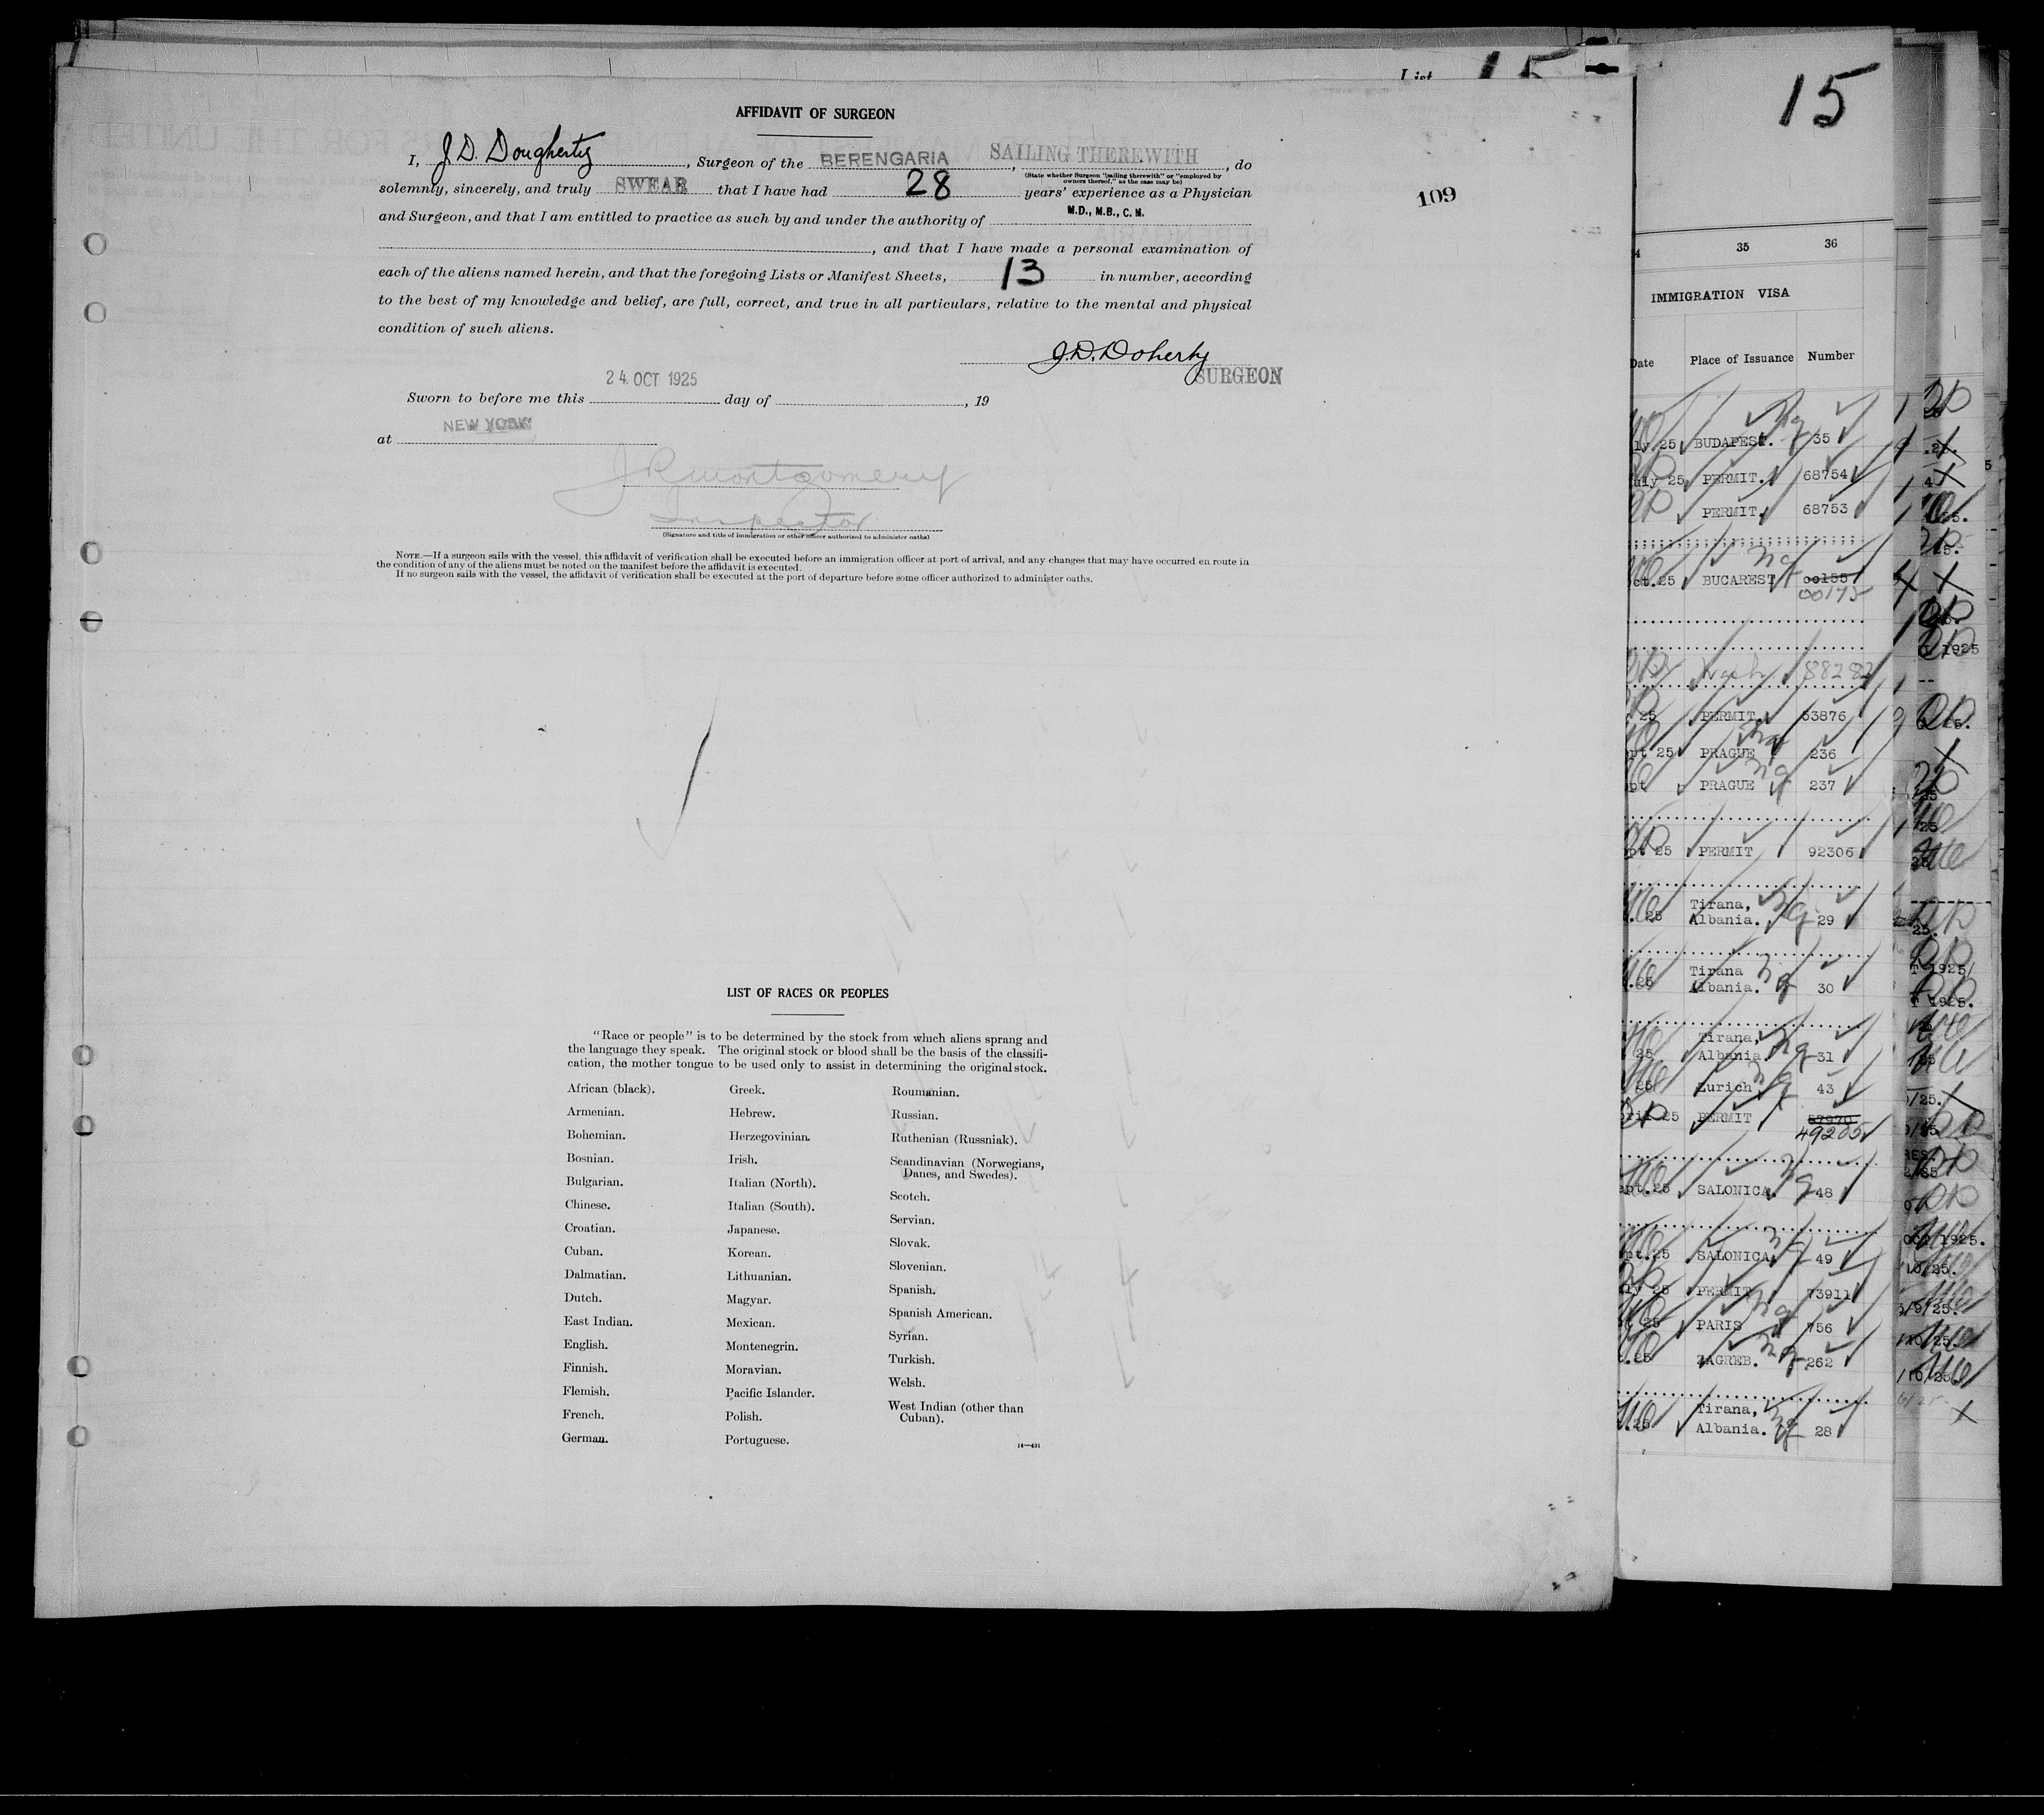 List 15
AFFIDAVIT OF SURGEON
I, J. D. Dougherty, Surgeon of the BERENGARIA, SAILING THEREWITH, do
(State whether Surgeon "sailing therewith" or "employed by
owners thereof," as the case may be)
solemnly, sincerely, and truly SWEAR that I have had 28 years' experience as a Physician
and Surgeon, and that I am entitled to practice as such by and under the authority of M.D., M.B., C. M.
, and that I have made a personal examination of
each of the aliens named herein, and that the foregoing Lists or Manifest Sheets, 13 in number, according
to the best of my knowledge and belief, are full, correct, and true in all particulars, relative to the mental and physical
condition of such aliens.
J. D. Doherty
SURGEON
24. OCT 1925
Sworn to before me this day of , 19
at NEW YORK
J R Montgomery
Inspector
(Signature and title of immigration or other officer authorized to administer oaths)
NOTE.—If a surgeon sails with the vessel, this affidavit of verification shall be executed before an immigration officer at port of arrival, and any changes that may have occurred en route in
the condition of any of the aliens must be noted on the manifest before the affidavit is executed.
If no surgeon sails with the vessel, the affidavit of verification shall be executed at the port of departure before some officer authorized to administer oaths.
109
LIST OF RACES OR PEOPLES
"Race or people" is to be determined by the stock from which aliens sprang and
the language they speak. The original stock or blood shall be the basis of the classifi-
cation, the mother tongue to be used only to assist in determining the original stock.
African (black).
Armenian.
Bohemian.
Bosnian.
Bulgarian.
Chinese.
Croatian.
Cuban.
Dalmatian.
Dutch.
East Indian.
English.
Finnish.
Flemish.
French.
German.
Greek.
Hebrew.
Herzegovinian.
Irish.
Italian (North).
Italian (South).
Japanese.
Korean.
Lithuanian.
Magyar.
Mexican.
Montenegrin.
Moravian.
Pacific Islander.
Polish.
Portuguese.
Roumanian.
Russian.
Ruthenian (Russniak).
Scandinavian (Norwegians,
Danes, and Swedes).
Scotch.
Servian.
Slovak.
Slovenian.
Spanish.
Spanish American.
Syrian.
Turkish.
Welsh.
West Indian (other than
Cuban).
14—431
15
35 36
IMMIGRATION VISA
Date Place of Issuance Number
ly 25 BUDAPEST. 35
uly 25 PERMIT. 68754
PERMIT. 68753
ct.25 BUCAREST 00155
00175
Wash 88282
25 PERMIT. 53876
pt 25 PRAGUE 236
pt PRAGUE 237
pt 25 PERMIT 92306
25 Tirana,
Albania. 29
.25 Tirana
Albania. 30
25 Tirana,
Albania 31
25 Zurich 43
pril 25 PERMIT 57970
49205
pt.25 SALONICA. 48
pt.25 SALONICA. 49
ly 25 PERMIT 73911
25 PARIS 756
.25 ZAGREB. 262
.25 Tirana,
Albania. 28